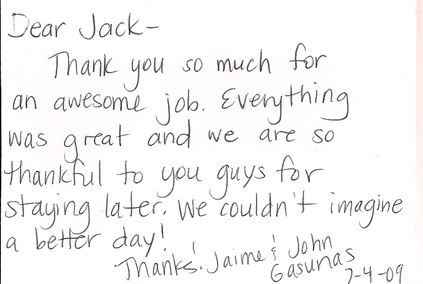 Dear Jack-
Thank you so much for
an awesome job. Everything
was great and we are so
thankful to you guys for
staying later. We couldn't imagine
a better day!
Thanks! Jaime & John
Gasunas
7-4-09